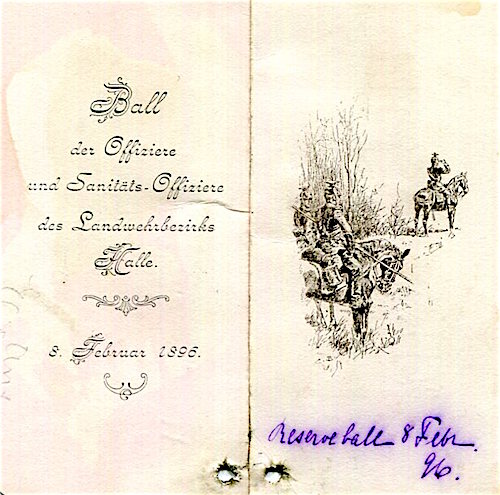 Ball
der Offiziere
und Sanitäts-Offiziere
des Landwehrbezirks
Halle.
8. Februar 1896.
Reserveball 8 Febr.
96.